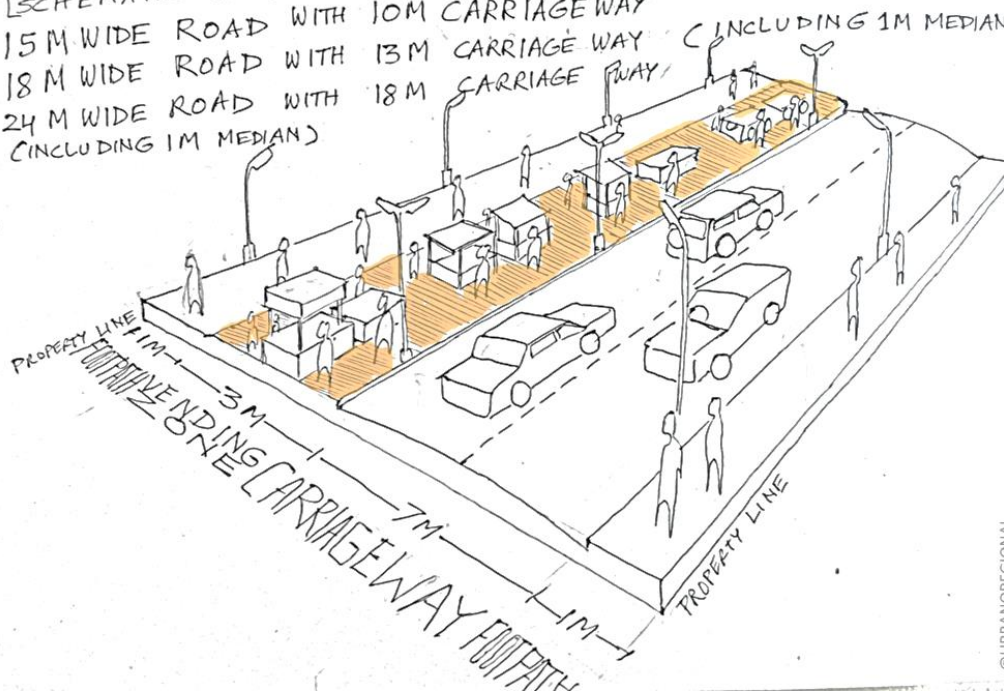 [SCHEMA
15 M WIDE ROAD WITH 10M CARRIAGE WAY
18 M WIDE ROAD WITH 13 M CARRIAGE WAY (INCLUDING 1M MEDIAN
24 M WIDE ROAD WITH 18 M CARRIAGE WAY
(INCLUDING 1M MEDIAN)
PROPERTY LINE
1M
3M
7M
1M
FOOTPATH
VENDING
ZONE
CARRIAGEWAY
FOOTPATH
PROPERTY LINE